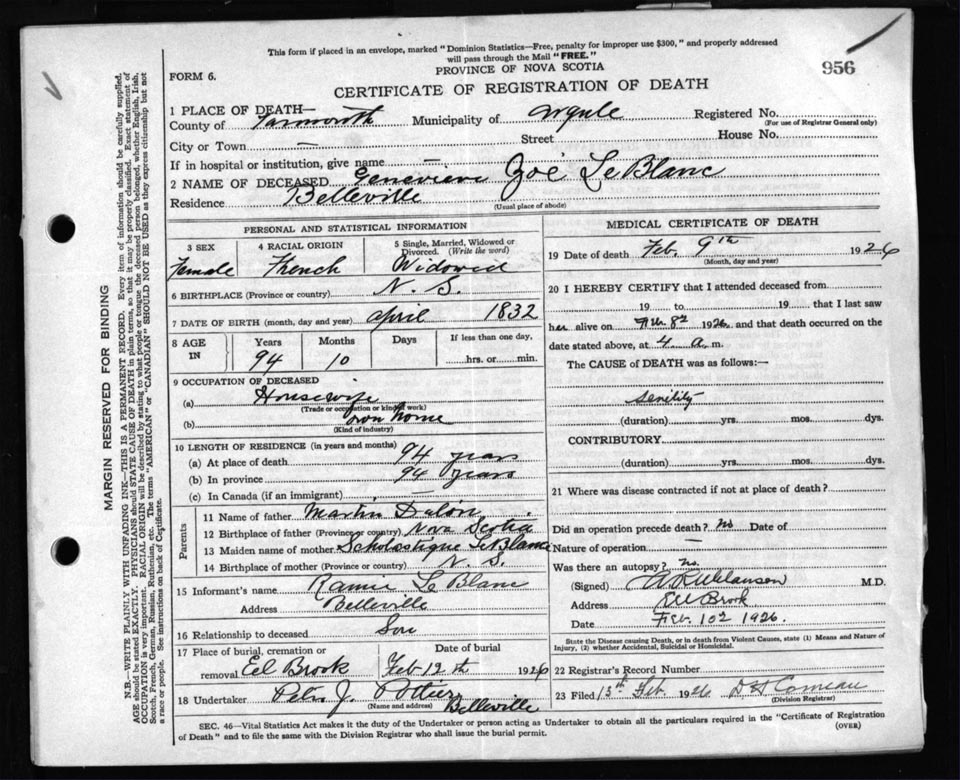 This form if placed in an envelope, marked "Dominion Statistics—Free, penalty for improper use $300," and properly addressed
will pass through the Mail "FREE."
956
PROVINCE OF NOVA SCOTIA
FORM 6.
CERTIFICATE OF REGISTRATION OF DEATH
1 PLACE OF DEATH—
County of Yarmouth Municipality of Argyle Registered No.
(For use of Registrar General only)
City or Town — Street House No.
If in hospital or institution, give name —
2 NAME OF DECEASED Genevieve Zoé LeBlanc
Residence Belleville
(Usual place of abode)
PERSONAL AND STATISTICAL INFORMATION
3 SEX 4 RACIAL ORIGIN 5 Single, Married, Widowed or
Divorced. (Write the word)
Female French Widowed
6 BIRTHPLACE (Province or country) N. S.
7 DATE OF BIRTH (month, day and year) April 1832
8 AGE IN Years Months Days If less than one day,
94 10 hrs. or min.
9 OCCUPATION OF DECEASED
(a) Housewife
(Trade or occupation or kind of work)
(b) own home
(Kind of industry)
10 LENGTH OF RESIDENCE (in years and months)
(a) At place of death 94 years
(b) In province 94 years
(c) In Canada (if an immigrant) —
Parents
11 Name of father Martin
12 Birthplace of father (Province or country) Nova Scotia
13 Maiden name of mother Scholastique LeBlanc
14 Birthplace of mother (Province or country) N. S.
15 Informant's name LeBlanc
Address Belleville
16 Relationship to deceased Son
17 Place of burial, cremation or Date of burial
removal Eel Brook Feb 12th 1926
18 Undertaker Peter J. Pottier
(Name and address) Belleville
MEDICAL CERTIFICATE OF DEATH
19 Date of death Feb, 9th 1926
(Month, day and year)
20 I HEREBY CERTIFY that I attended deceased from
19 to 19 that I last saw
her alive on Feb. 8th 1926 and that death occurred on the
date stated above, at 4 a. m.
The CAUSE of DEATH was as follows:—
senility
(duration) yrs. mos. dys.
CONTRIBUTORY
(duration) yrs. mos. dys.
21 Where was disease contracted if not at place of death?
Did an operation precede death? no Date of
Nature of operation —
Was there an autopsy? no.
(Signed) M.D.
Address Eel Brook
Date Feb. 10th 1926.
State the Disease causing Death, or in death from Violent Causes, state (1) Means and Nature of
Injury, (2) whether Accidental, Suicidal or Homicidal.
22 Registrar's Record Number
23 Filed 13th Feb. 1926 Comeau
(Division Registrar)
SEC. 46—Vital Statistics Act makes it the duty of the Undertaker or person acting as Undertaker to obtain all the particulars required in the "Certificate of Registration
of Death" and to file the same with the Division Registrar who shall issue the burial permit. (OVER)
MARGIN RESERVED FOR BINDING
N.B.—WRITE PLAINLY WITH UNFADING INK—THIS IS A PERMANENT RECORD. Every item of information should be carefully supplied.
AGE should be stated EXACTLY. PHYSICIANS should STATE CAUSE OF DEATH in plain terms, so that it may be properly classified. Exact statement of
OCCUPATION is very important. RACIAL ORIGIN will be described by stating to what people or tongue the deceased person belonged, whether English, Irish,
Scotch, French, German, Russian, Ruthenian, etc. The terms "AMERICAN" or "CANADIAN" SHOULD NOT BE USED as they express citizenship but not
a race or people. See instructions on back of Certificate.